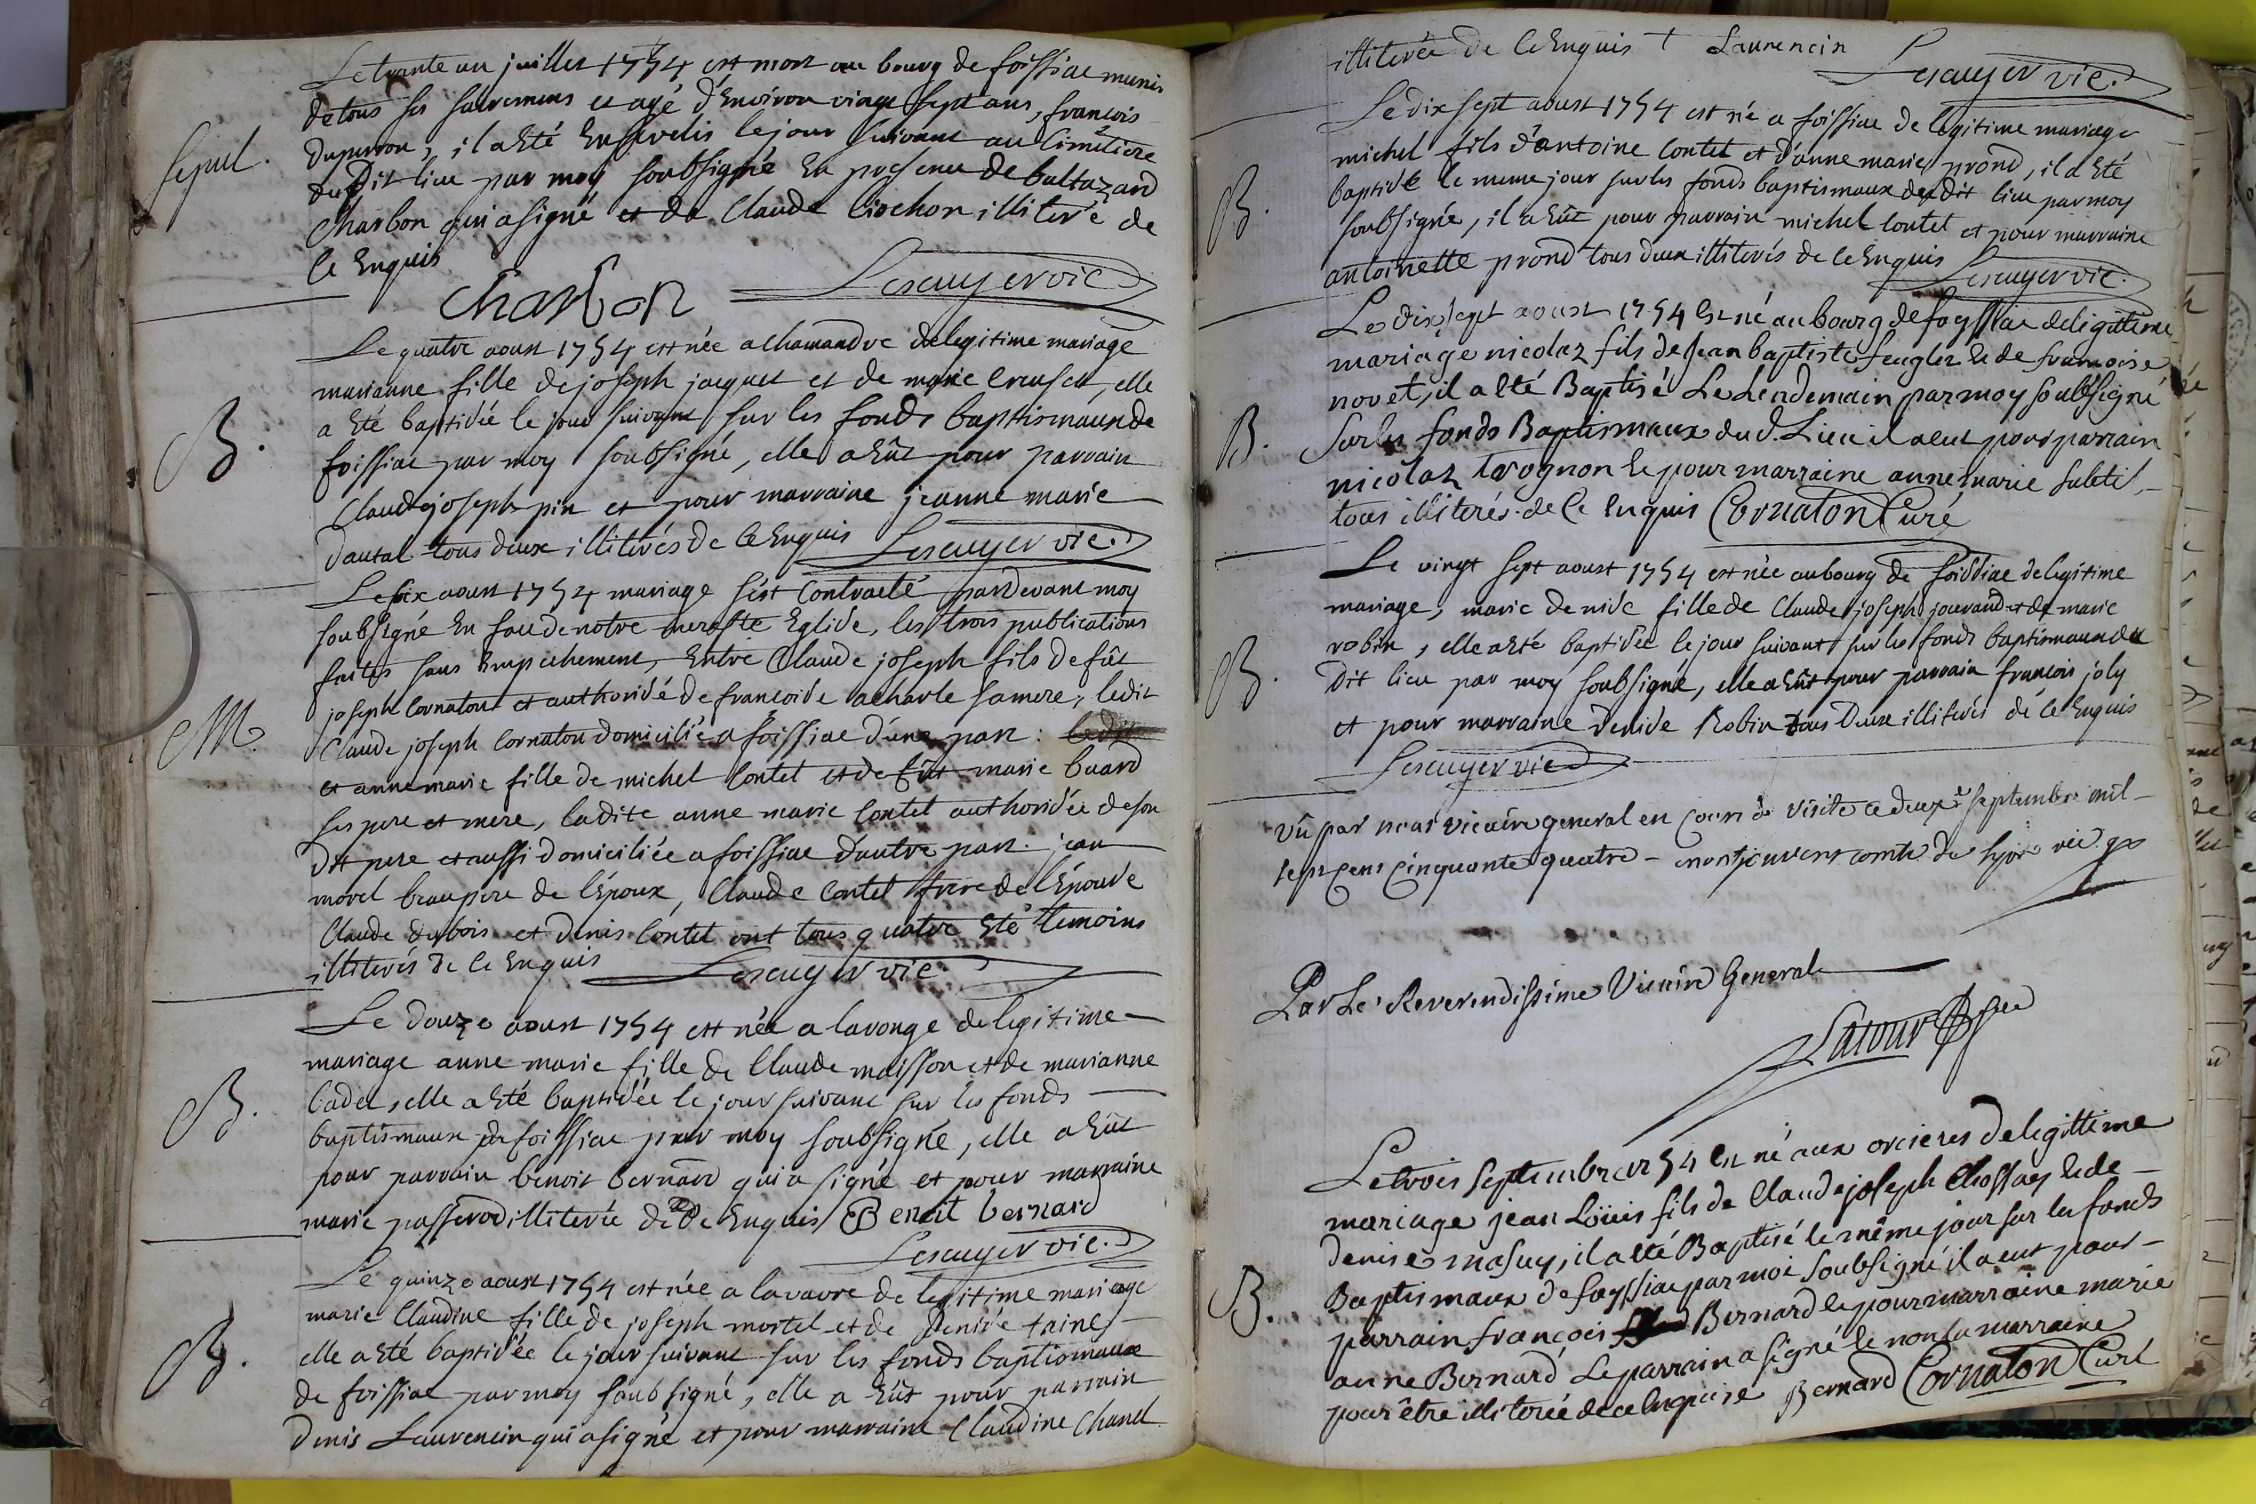 Le trante un juillet 1754 est mort au bourg de foissiac munis
de tous ses sacremens et agé d'Environ vingt sept ans, francois
Sepul.
duperron, il a Eté Ensevelis le jour suivant au cimitiere
du Dit lieu par moy soubsigné En presence de baltazard
charbon qui a signé et de Claude Ciochon illiteré de
ce Enquis
charbon Lescuyer vic
Le quatre aoust 1754 est née a chamandre de legitime mariage
marianne fille de joseph jacquet et de marie Creuset, elle
a Eté baptisée le jour suivant sur les fonds baptismaux de
B.
foissiac par moy soubsigné, elle a Eût pour parrain
Claude joseph pin et pour marraine jeanne marie
dautal tous deux illiterés de ce Enquis Lescuyer vic.
Le six aoust 1754 mariage s'est Contracté pardevant moy
soubsigné En face de notre mere ste Eglise, les trois publications
faites sans Empechement, Entre Claude joseph fils de fût
joseph Cornaton et authorisé de francoise acharle sa mere, ledit
M.
Claude joseph Cornaton domicilié a foissiac d'une part: ledit
et anne marie fille de michel Contet et de fût marie buard
ses pere et mere, ladite anne marie Contet authorisée de son
dit pere et aussi domiciliée a foissiac d'autre part. jean
morel beaupere de l'Epoux, Claude Contet frere de l'Epouse
Claude dubois et Denis Contet ont tous quatre Eté temoins
illiterés de ce Enquis Lescuyer vic.
Le douze aoust 1754 est née a lavouge de legitime
mariage anne marie fille de Claude maisson et de marianne
Cadet, elle a Eté baptisée le jour suivant sur les fonds
B.
baptismaux de foissiac par moy soubsigné, elle a Eût
pour parrain benoit bernard qui a signé et pour marraine
marie passerod illiterée de ce Enquis Benoit bernard
Lescuyer vic.
Le quinze aoust 1754 est née a lavavre de legitime mariage
marie Claudine fille de joseph mortel et de Denise taine
elle a Eté baptisée le jour suivant sur les fonds baptismaux
B.
de foissiac par moy soubsigné, elle a Eût pour parrain
Denis Laurencin qui a signé et pour marraine Claudine Chanel
illiterée de ce Enquis + Laurencin Lescuyer vic.
Le dix sept aoust 1754 est né a foissiac de legitime mariage
michel fils d'antoine Contet et d'anne marie prond, il a Eté
B.
baptisé le meme jour sur les fonds baptismaux du dit lieu par moy
soubsigné, il a Eût pour parrain michel Contet et pour marraine
antoinette prond tous deux illiterés de ce Enquis
Lescuyer vic.
Le dix sept aoust 1754 Est né au bourg de foyssiac de ligittime
mariage nicolaz fils de Jean baptiste feuglez Et de francoise
novet, il a Eté Baptisé Le Lendemain par moy soubsigné
B.
Sur les fonds Baptismaux dud. Lieu il a eut pour parrain
nicolaz trognon Et pour marraine anne marie subtil,
tous illiterés de ce Enquis Cornaton Curé
Le vingt sept aoust 1754 est née au bourg de foissiac de legitime
mariage, marie denise fille de Claude joseph jouvand et de marie
robin, elle a Eté baptisée le jour suivant sur les fonds baptismaux du
B.
dit lieu par moy soubsigné, elle a Eût pour parrain francois joly
et pour marraine denise Robin tous Deux illiterés de ce Enquis
Lescuyer vic
Vû par nous vicaire general en cours de visite ce deuxe septembre mil
sept cens cinquante quatre - montjouvent comte de lyon vic. g.
Par Le Reverendissime Vicaire General
Latour
Le trois Septembre 1754 Est né aux orcieres de legittime
mariage jean Loüis fils de Claude joseph Chossay Et de
denise masuy, il a Eté Baptisé le même jour sur les fonds
B.
Baptismaux de foyssiac par moi soubsigné il a eut pour
parrain francois Bernard Et pour marraine marie
anne Bernard Le parrain a signé Et non la marraine
pour être illiterée de ce Enquise Bernard Cornaton Curé